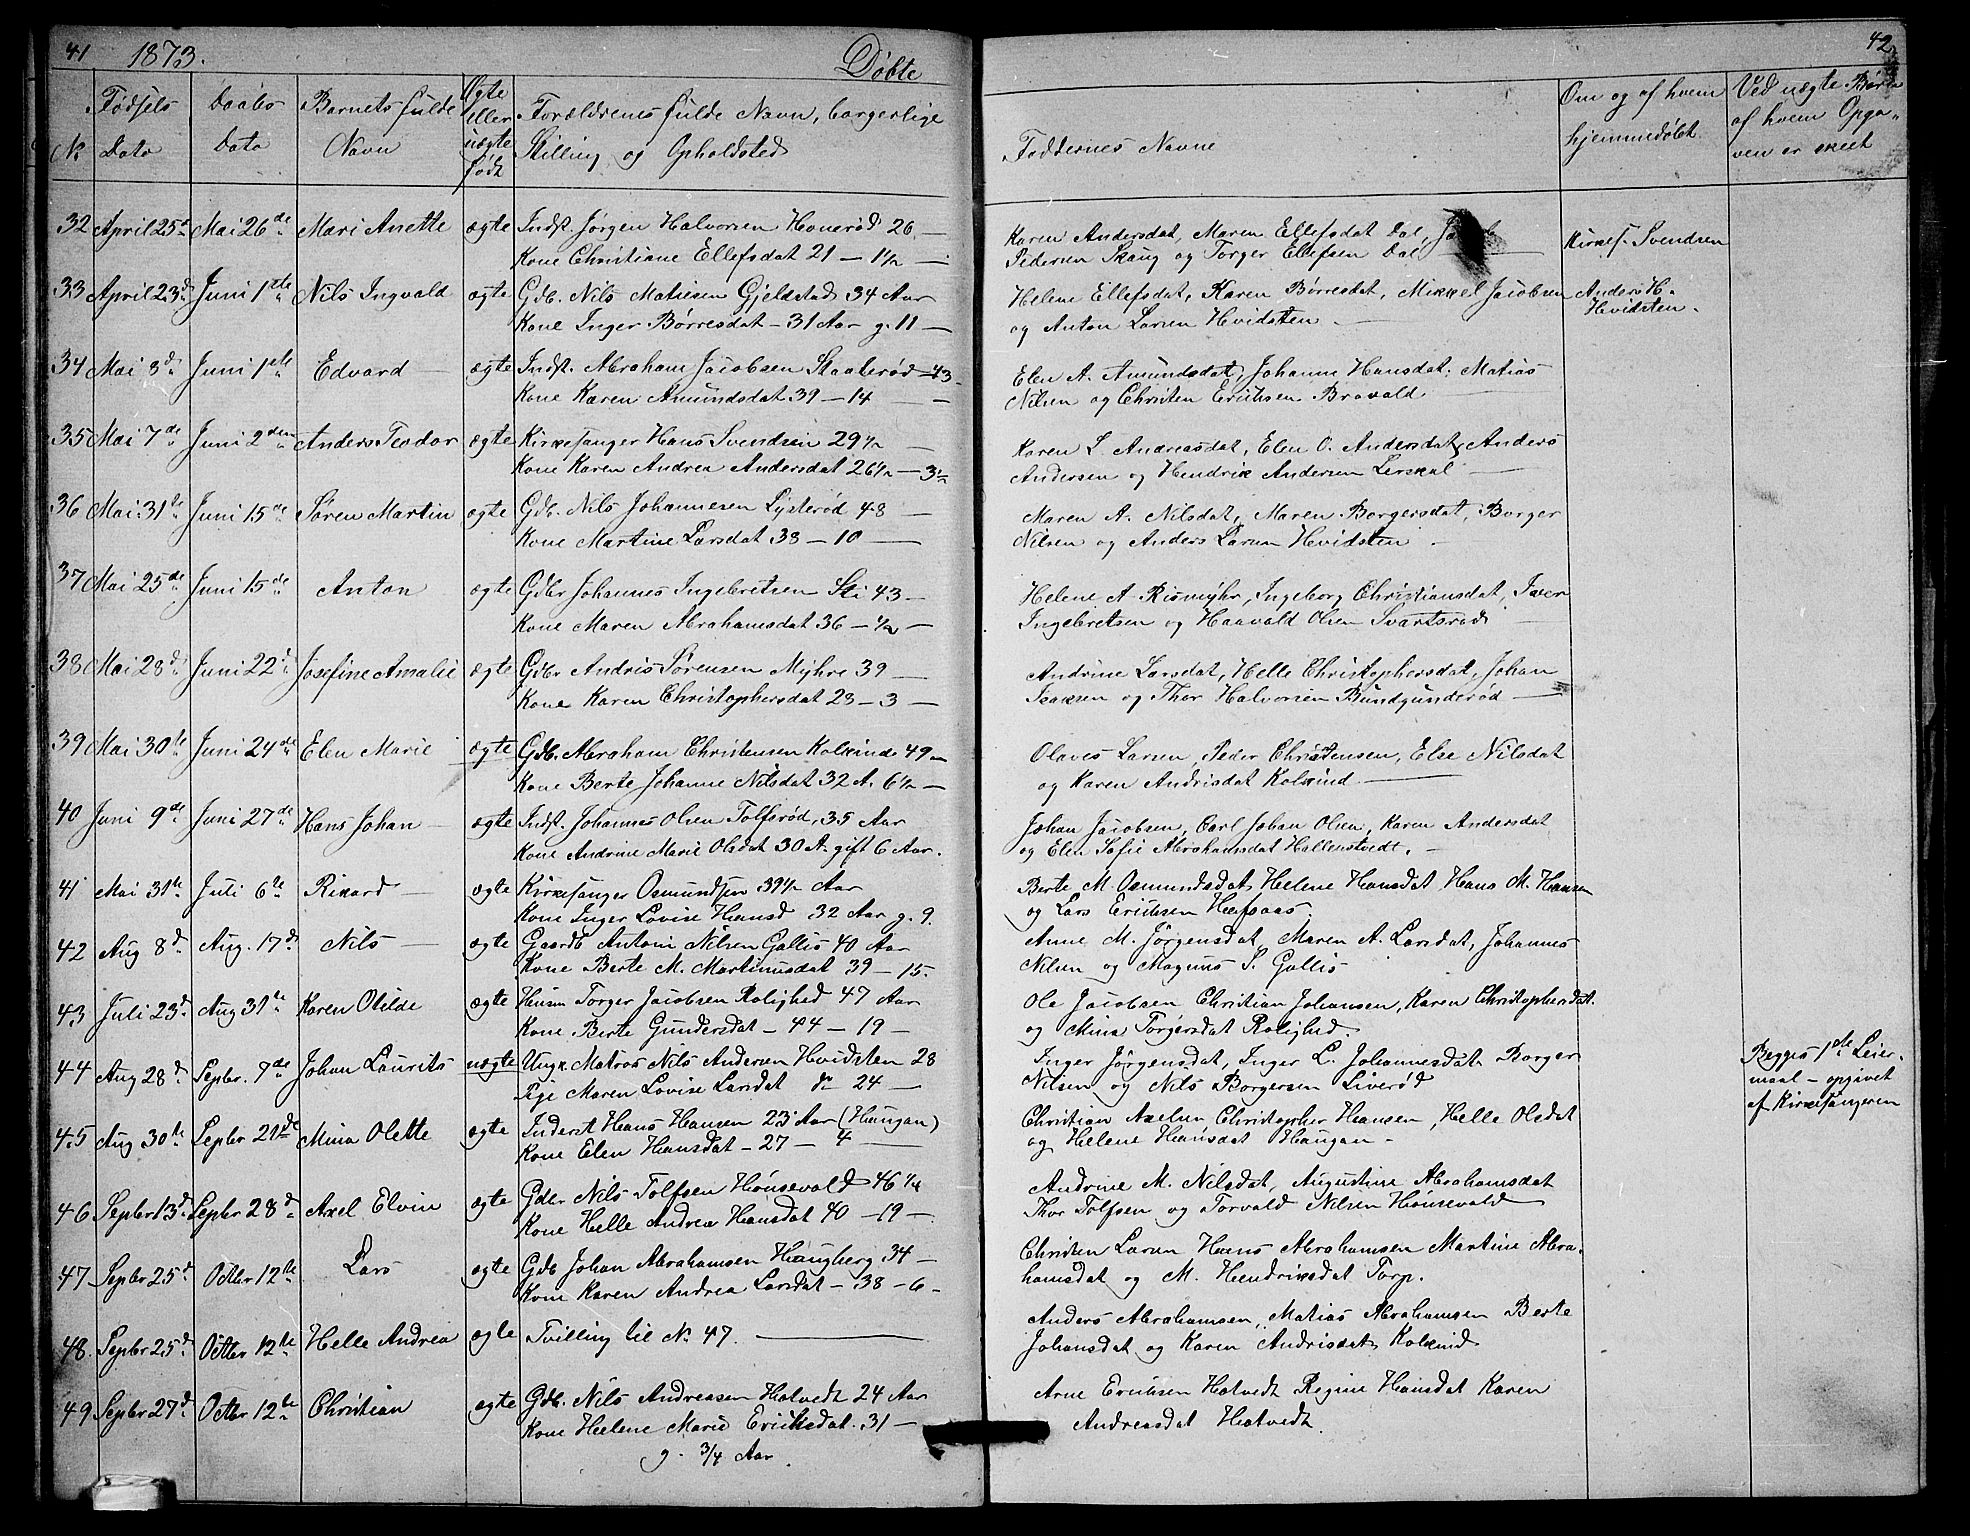 41 1873. Døbte 42
N. Fødsels Dato Daabs Dato Barnets fulde Navn Ægte eller uægte født Forældrenes fulde Navn, borgerlige Stilling og Opholdsted Faddernes Navne Om og af hvem hjemmedøbt Ved uægte Børn af hvem Opgaven er skeet
32 April 25de Mai 26de Mari Anette ægte Indst. Jørgen Halvorsen Honerød 26 — Karen Andersdat, Maren Ellefsdat Dal, Jacob Kirkes. Svendsen
Kone Christiane Ellefsdat 21 — 1½ — Pedersen Skaug og Torger Ellefsen Dal
33 April 23d Juni 1ste Nils Ingvald ægte Gdb. Nils Matisen Gjeldstad 34 Aar Helene Ellefsdat, Karen Børresdat, Mikkel Jacobsen Anders H.
Kone Inger Børresdat — 31 Aar g. 11 — og Anton Larsen Hvidsten — Hvidsten.
34 Mai 3d Juni 1ste Edvard ægte Indst. Abraham Jacobsen Staalerød 43 Elen A. Amundsdat, Johanne Hansdat, Matias
Kone Karen Amundsdat 39 — 14 — Nilsen og Christen Erichsen Bravald
35 Mai 7de Juni 2den Anders Teodor ægte Kirkesanger Hans Svendsen 29½ — Karen L. Andreasdat, Elen O. Andersdat, Anders
Kone Karen Andrea Andersdat 26½ — 3½ Andersen og Hendrik Andersen Lerskal
36 Mai 31te Juni 15de Søren Martin ægte Gdb. Nils Johannesen Lysterød 48 — Maren A. Nilsdat, Maren Borgersdat, Borger
Kone Martine Larsdat 38 — 10 — Nilsen og Anders Larsen Hvidsten
37 Mai 25de Juni 15de Anton ægte Gdbr Johannes Ingebretsen Sti 43 — Helene A. Rismyhr, Ingeborg Christiansdat, Iver
Kone Maren Abrahamsdat 36 — ½ — Ingebretsen og Haavald Olsen Svartsrød
38 Mai 28d Juni 22d Josefine Amalie ægte Gdbr Andris Sørensen Myhre 39 — Andrine Larsdat, Helle Christophersdat, Johan
Kone Karen Christophersdat 23 — 3 — Isaksen og Thor Halvorsen Bundgunderød —
39 Mai 30te Juni 24de Elen Marie ægte Gdb. Abraham Christensen Kolkind 49 — Olaves Larsen, Peder Christensen, Else Nilsdat
Kone Berte Johanne Nilsdat 32 A. 6½ — og Karen Andrisdat Kolkind
40 Juni 9de Juni 27de Hans Johan ægte Indst. Johannes Olsen Tolfsrød, 35 Aar Johan Jacobsen, Carl Johan Olsen, Karen Andersdat
Kone Andrine Marie Olsdat 30 A. gift 6 Aar. og Elen Sofie Abrahamsdat Hallenstvedt.
41 Mai 31te Juli 6te Rikard ægte Kirkesanger Osmundsen 39½ Aar Berte M. Osmundsdat, Helene Hansdat Hans M. Hansen
Kone Inger Lovise Hansd 32 Aar g. 9. og Lars Erichsen Hafsaas.
42 Aug 8d Aug. 17d Nils ægte Gaardb Antoni Nilsen Gallis 40 Aar Anne M. Jørgensdat, Maren A. Larsdat, Johannes
Kone Berte M. Martinusdat 39 — 15. Nilsen og Magnus S. Gallis
43 Juli 23d Aug 31te Karen Otilde ægte Husm Torger Jacobsen Rolighed 47 Aar Ole Jacobsen Christian Johansen, Karen Christophersdat.
Kone Berte Gundersdat — 44 — 19 — og Mina Torgersdat Rolighed.
44 Aug 28d Septbr. 7de Johan Laurits uægte Ungk. Matros Nils Andersen Hvidsten 28 Inger Jørgensdat, Inger L. Johannesdat. Borger Begges 1ste Leier-
Pige Maren Lovise Larsdat do 24 — Nilsen og Nils Borgersen Liverød maal — opgivet af Kirkesangeren
45 Aug 30te Septbr 21de Mina Olette ægte Inderst Hans Hansen 23 Aar (Haugan) Christian Axelsen Christopher Hansen, Helle Olsdat
Kone Elen Hansdat — 27 — 4 — og Helene Hansdat Haugan —
46 Septbr 13d Septbr 28d Axel Elvin ægte Gdbr Nils Tolfsen Hønsevald 46 ¼ Andrine M. Nilsdat, Augustine Abrahamsdat
Kone Helle Andrea Hansdat 40 — 19 — Thor Tolfsen og Torvald Nilsen Hønsevald
47 Septbr 25d Octbr 12te Lars ægte Gdb Johan Abrahamsen Haugberg 34 — Christen Larsen Hans Abrahamsen Martine Abra-
Kone Karen Andrea Larsdat — 38 — 6 — hamsdat og M. Hendriksdat Torp.
48. Septbr 25d Octbr 12te Helle Andrea ægte Tvilling til N. 47. — Anders Abrahamsen, Matias Abrahamsen Berte
Johansdat og Karen Andrisdat Kolkind
49 Septbr 27d Octbr 12te Christian ægte Gdb. Nils Andreasen Hotvedt 24 Aar Arne Erichsen Hotvedt Regine Hansdat Karen
Kone Helene Marie Eriksdat. 31 — Andreasdat Hotvedt.
g. ¾ Aar.